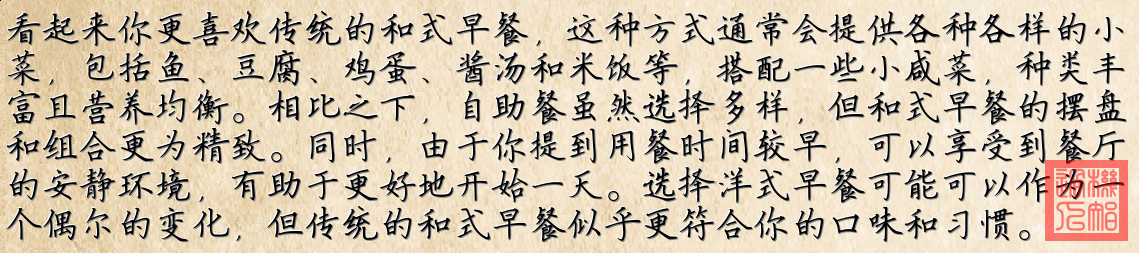 看起来你更喜欢传统的和式早餐，这种方式通常会提供各种各样的小
菜，包括鱼、豆腐、鸡蛋、酱汤和米饭等，搭配一些小咸菜，种类丰
富且营养均衡。相比之下，自助餐虽然选择多样，但和式早餐的摆盘
和组合更为精致。同时，由于你提到用餐时间较早，可以享受到餐厅
的安静环境，有助于更好地开始一天。选择洋式早餐可能可以作为一
个偶尔的变化，但传统的和式早餐似乎更符合你的口味和习惯。